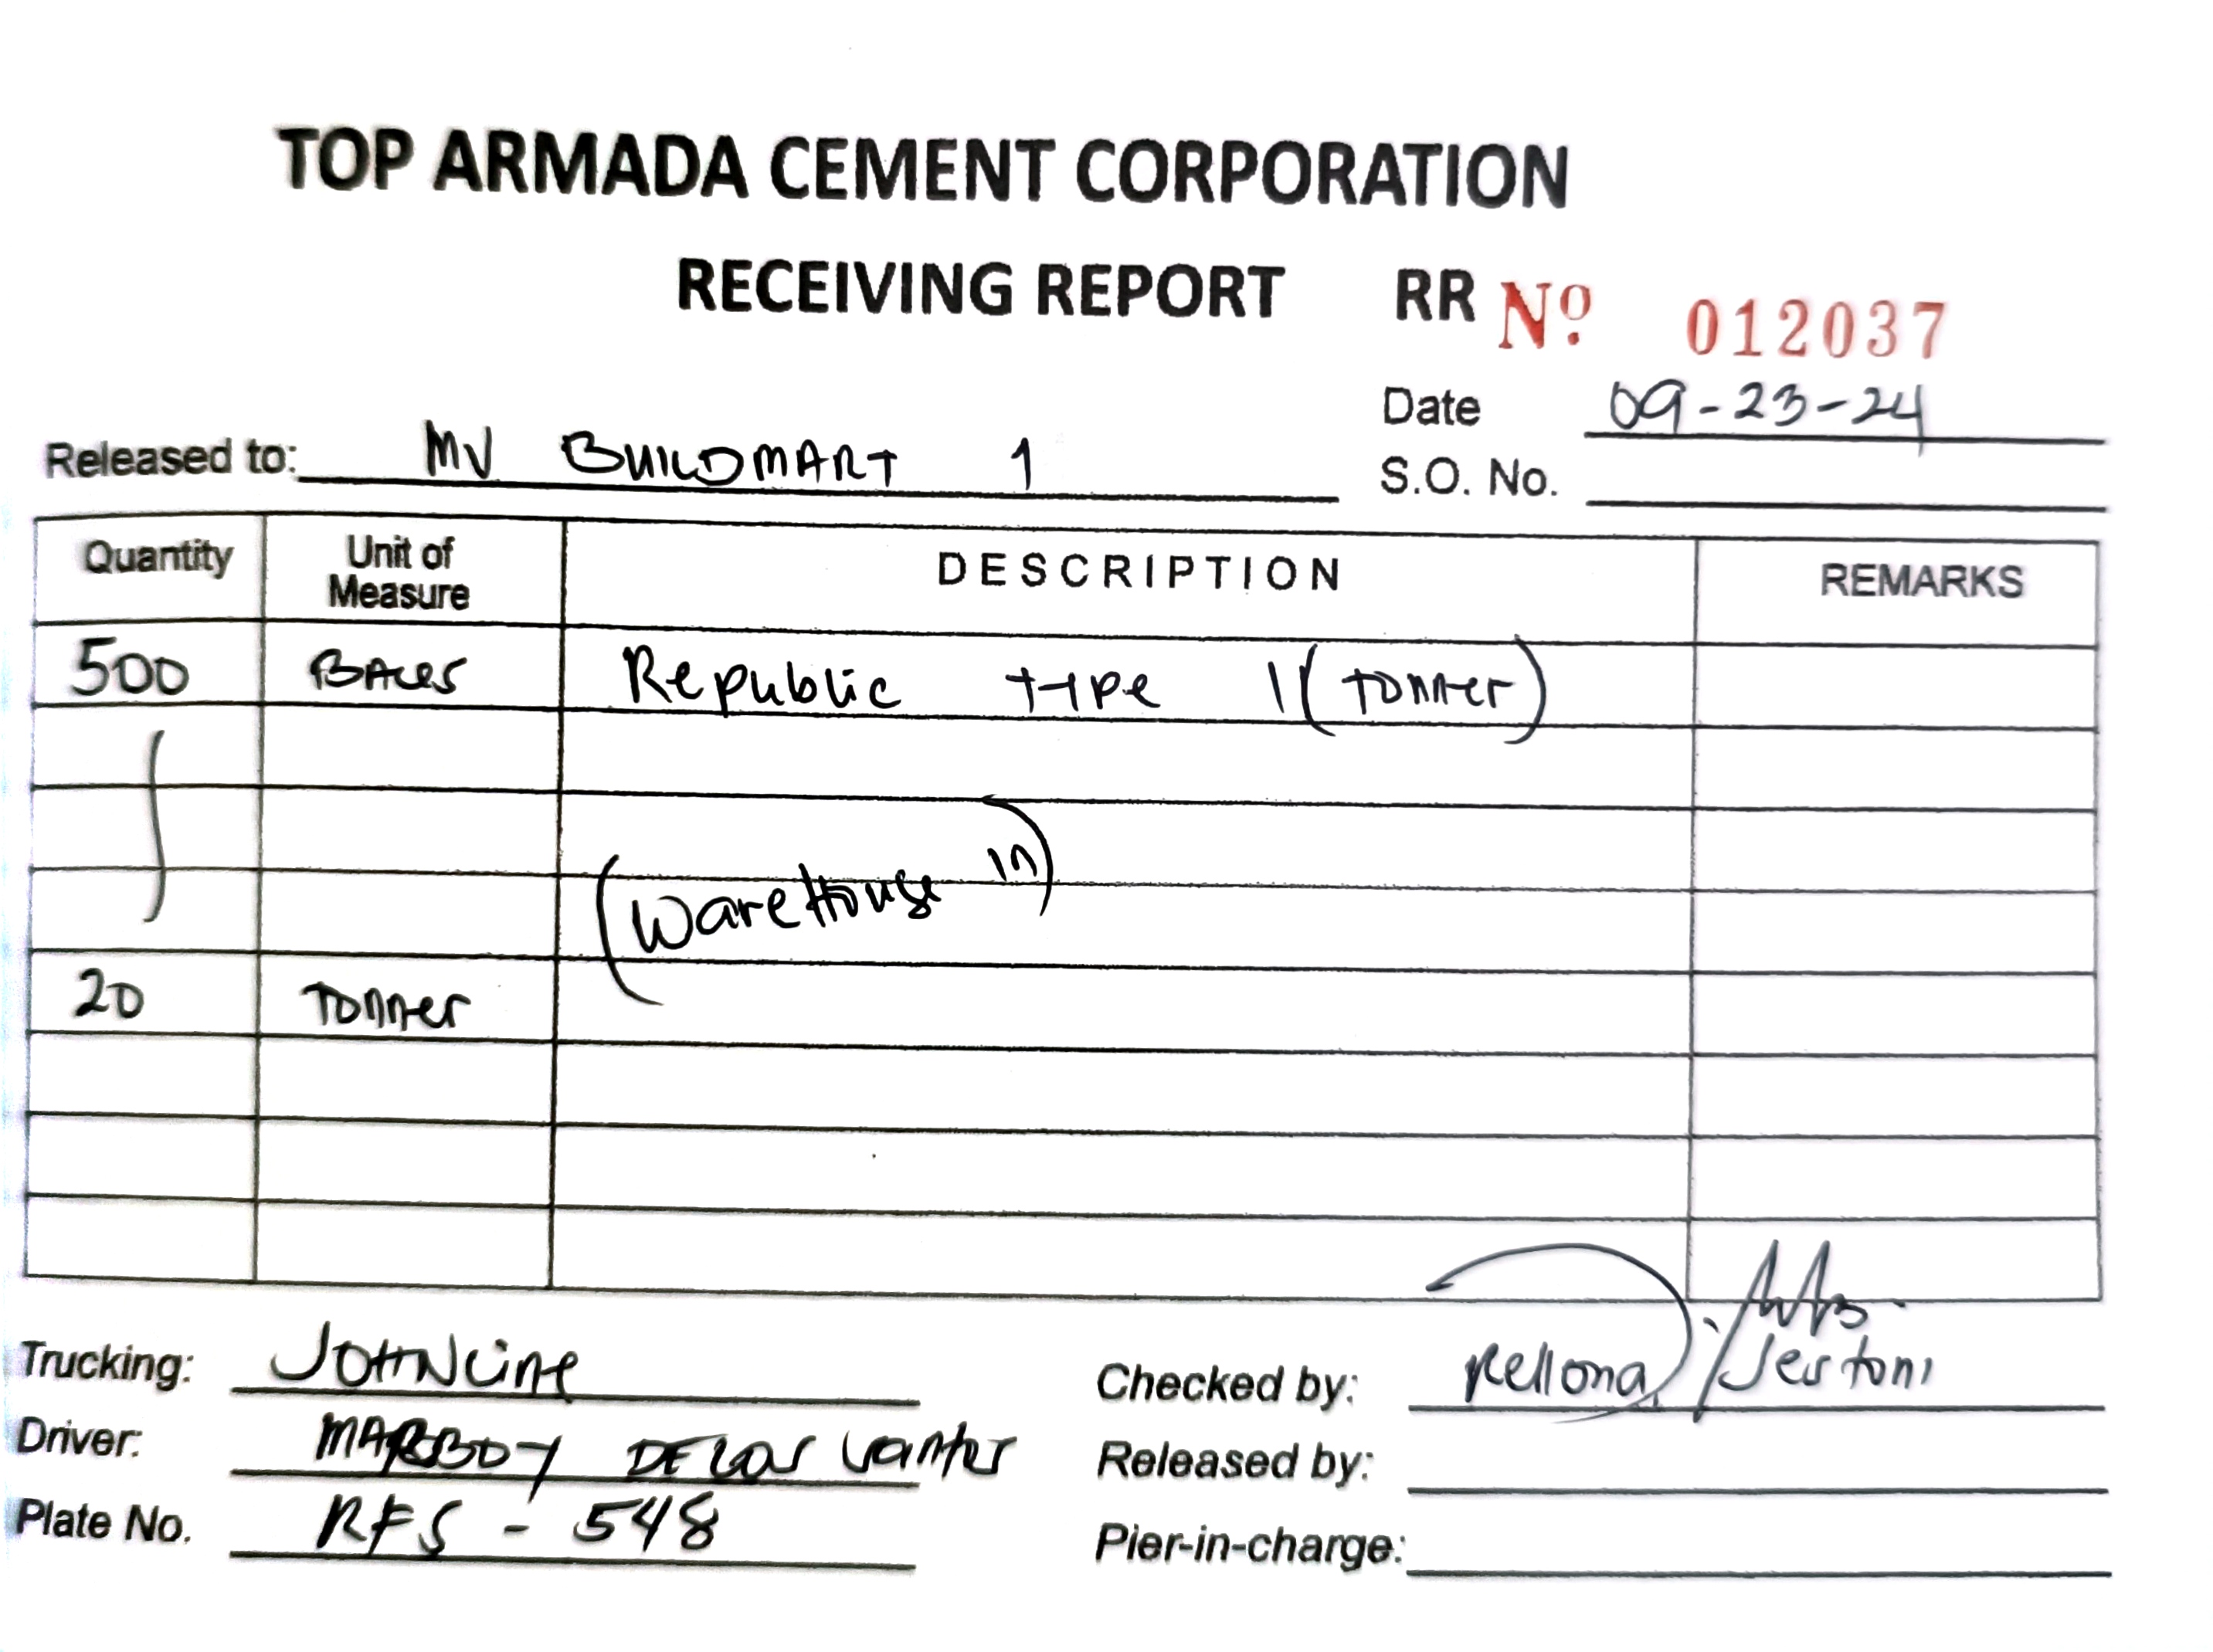 TOP ARMADA CEMENT CORPORATION
RECEIVING REPORT RR Nº 012037
Date 09-23-24
Released to: MV BUILDMART 1
S.O. No.
Quantity Unit of Measure DESCRIPTION REMARKS
500 BALES Republic type 1 (tonner)
(WareHouse in)
20 Tonner
Trucking: JOHNLINE
Checked by: Rellona / Jestoni
Driver: MARBOY
Released by:
Plate No. RFS - 548
Pier-in-charge: